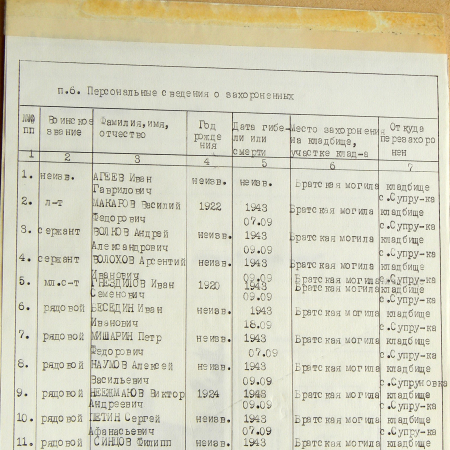 п.6. Персональные сведения о захороненных
№№ Воинское Фамилия,имя, Год Дата гибе- Место захоронения Откуда
пп звание отчество рожде ли или на кладбище, перезахоро
ния смерти участке клад-а нен
1 2 3 4 5 6 7
1. неизв. АГЕЕВ Иван неизв. неизв. Братская могила кладбище
Гавридович с.Супру-ка
2. л-т МАКАРОВ Василий 1922 1943 Братская могила кладбище
Федорович 07.09 с.Супру-ка
3. сержант ВОЛКОВ Андрей неизв. 1943 Братская могила кладбище
Александрович 09.09 с.Супру-ка
4. сержант ВОЛОХОВ Арсентий неизв. 1943 Братская могила кладбище
Иванович 09.09 с.Супру-ка
5. мл.с-т ГНЕЗДИЛОВ Иван 1920 1943 Братская могила кладбище
Семенович 09.09 с.Супру-ка
6. рядовой БЕСЕДИН Иван неизв. 1943 Братская могила кладбище
Иванович 18.09 с.Супру-ка
7. рядовой МИШАРИН Петр неизв. 1943 Братская могила кладбище
Федорович 07.09 с.Супру-ка
8. рядовой НАУМОВ Алексей неизв. 1943 Братская могила кладбище
Васильевич 09.09 с.Супруновка
9. рядовой Виктор 1924 1943 Братская могила кладбище
Андреевич 09.09 с.Супру-ка
10. рядовой ПЕТИН Сергей неизв. 1943 Братская могила кладбище
Афанасьевич 07.09 с.Супру-ка
11. рядовой СИНЦОВ Филипп неизв. 1943 Братская могила кладбище